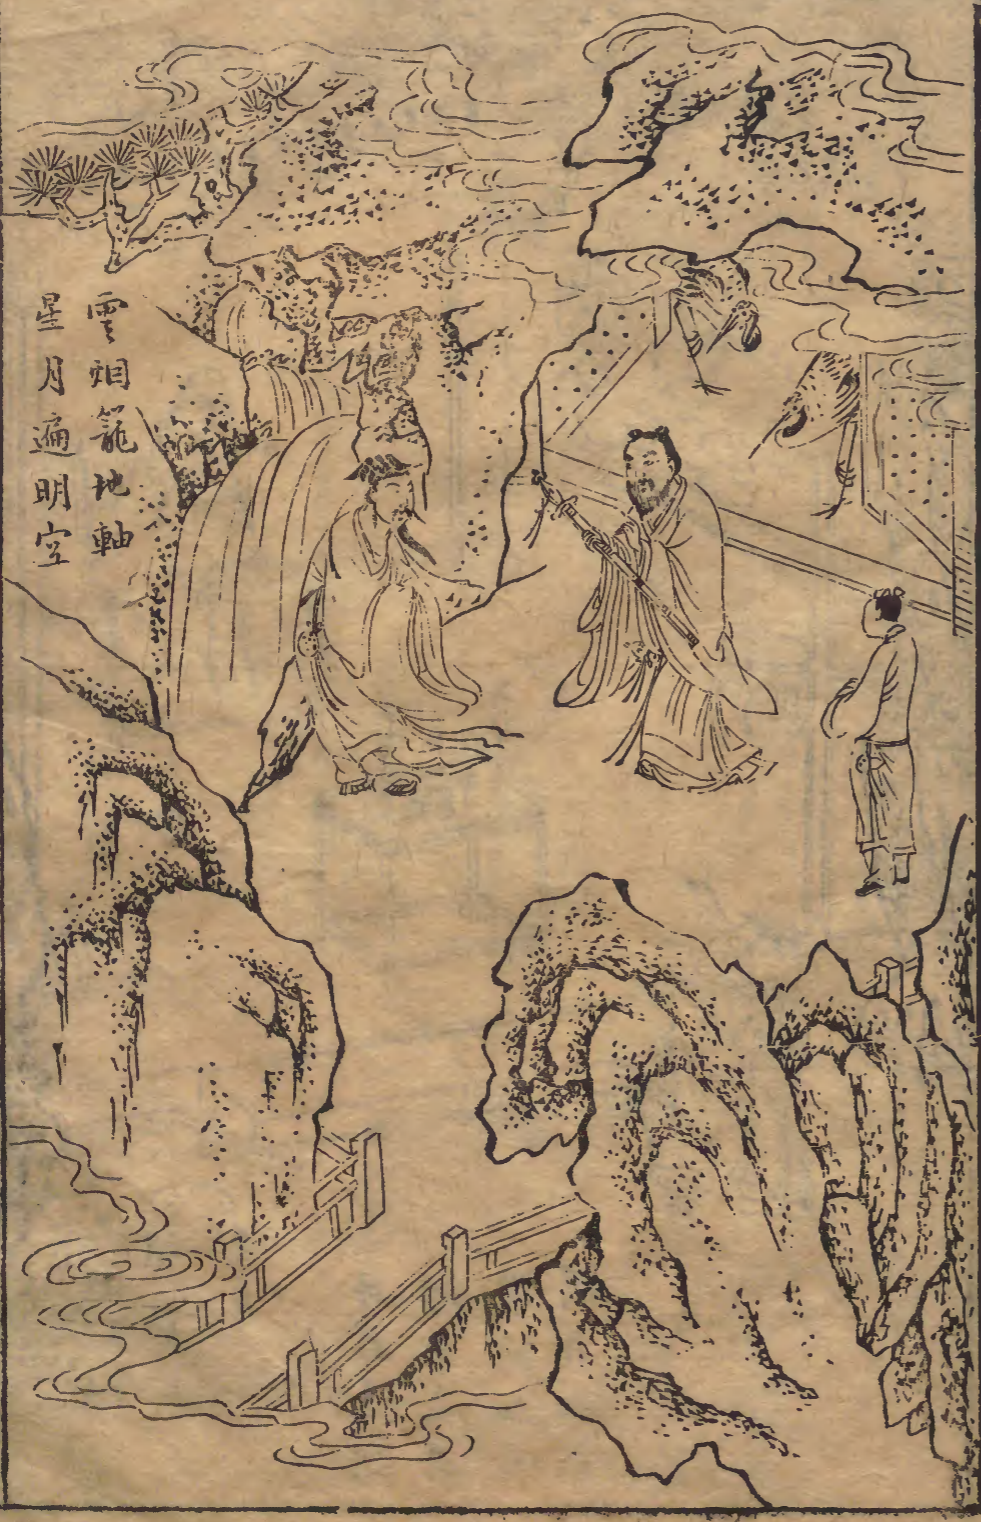 雲烟籠地軸
星月遍明空